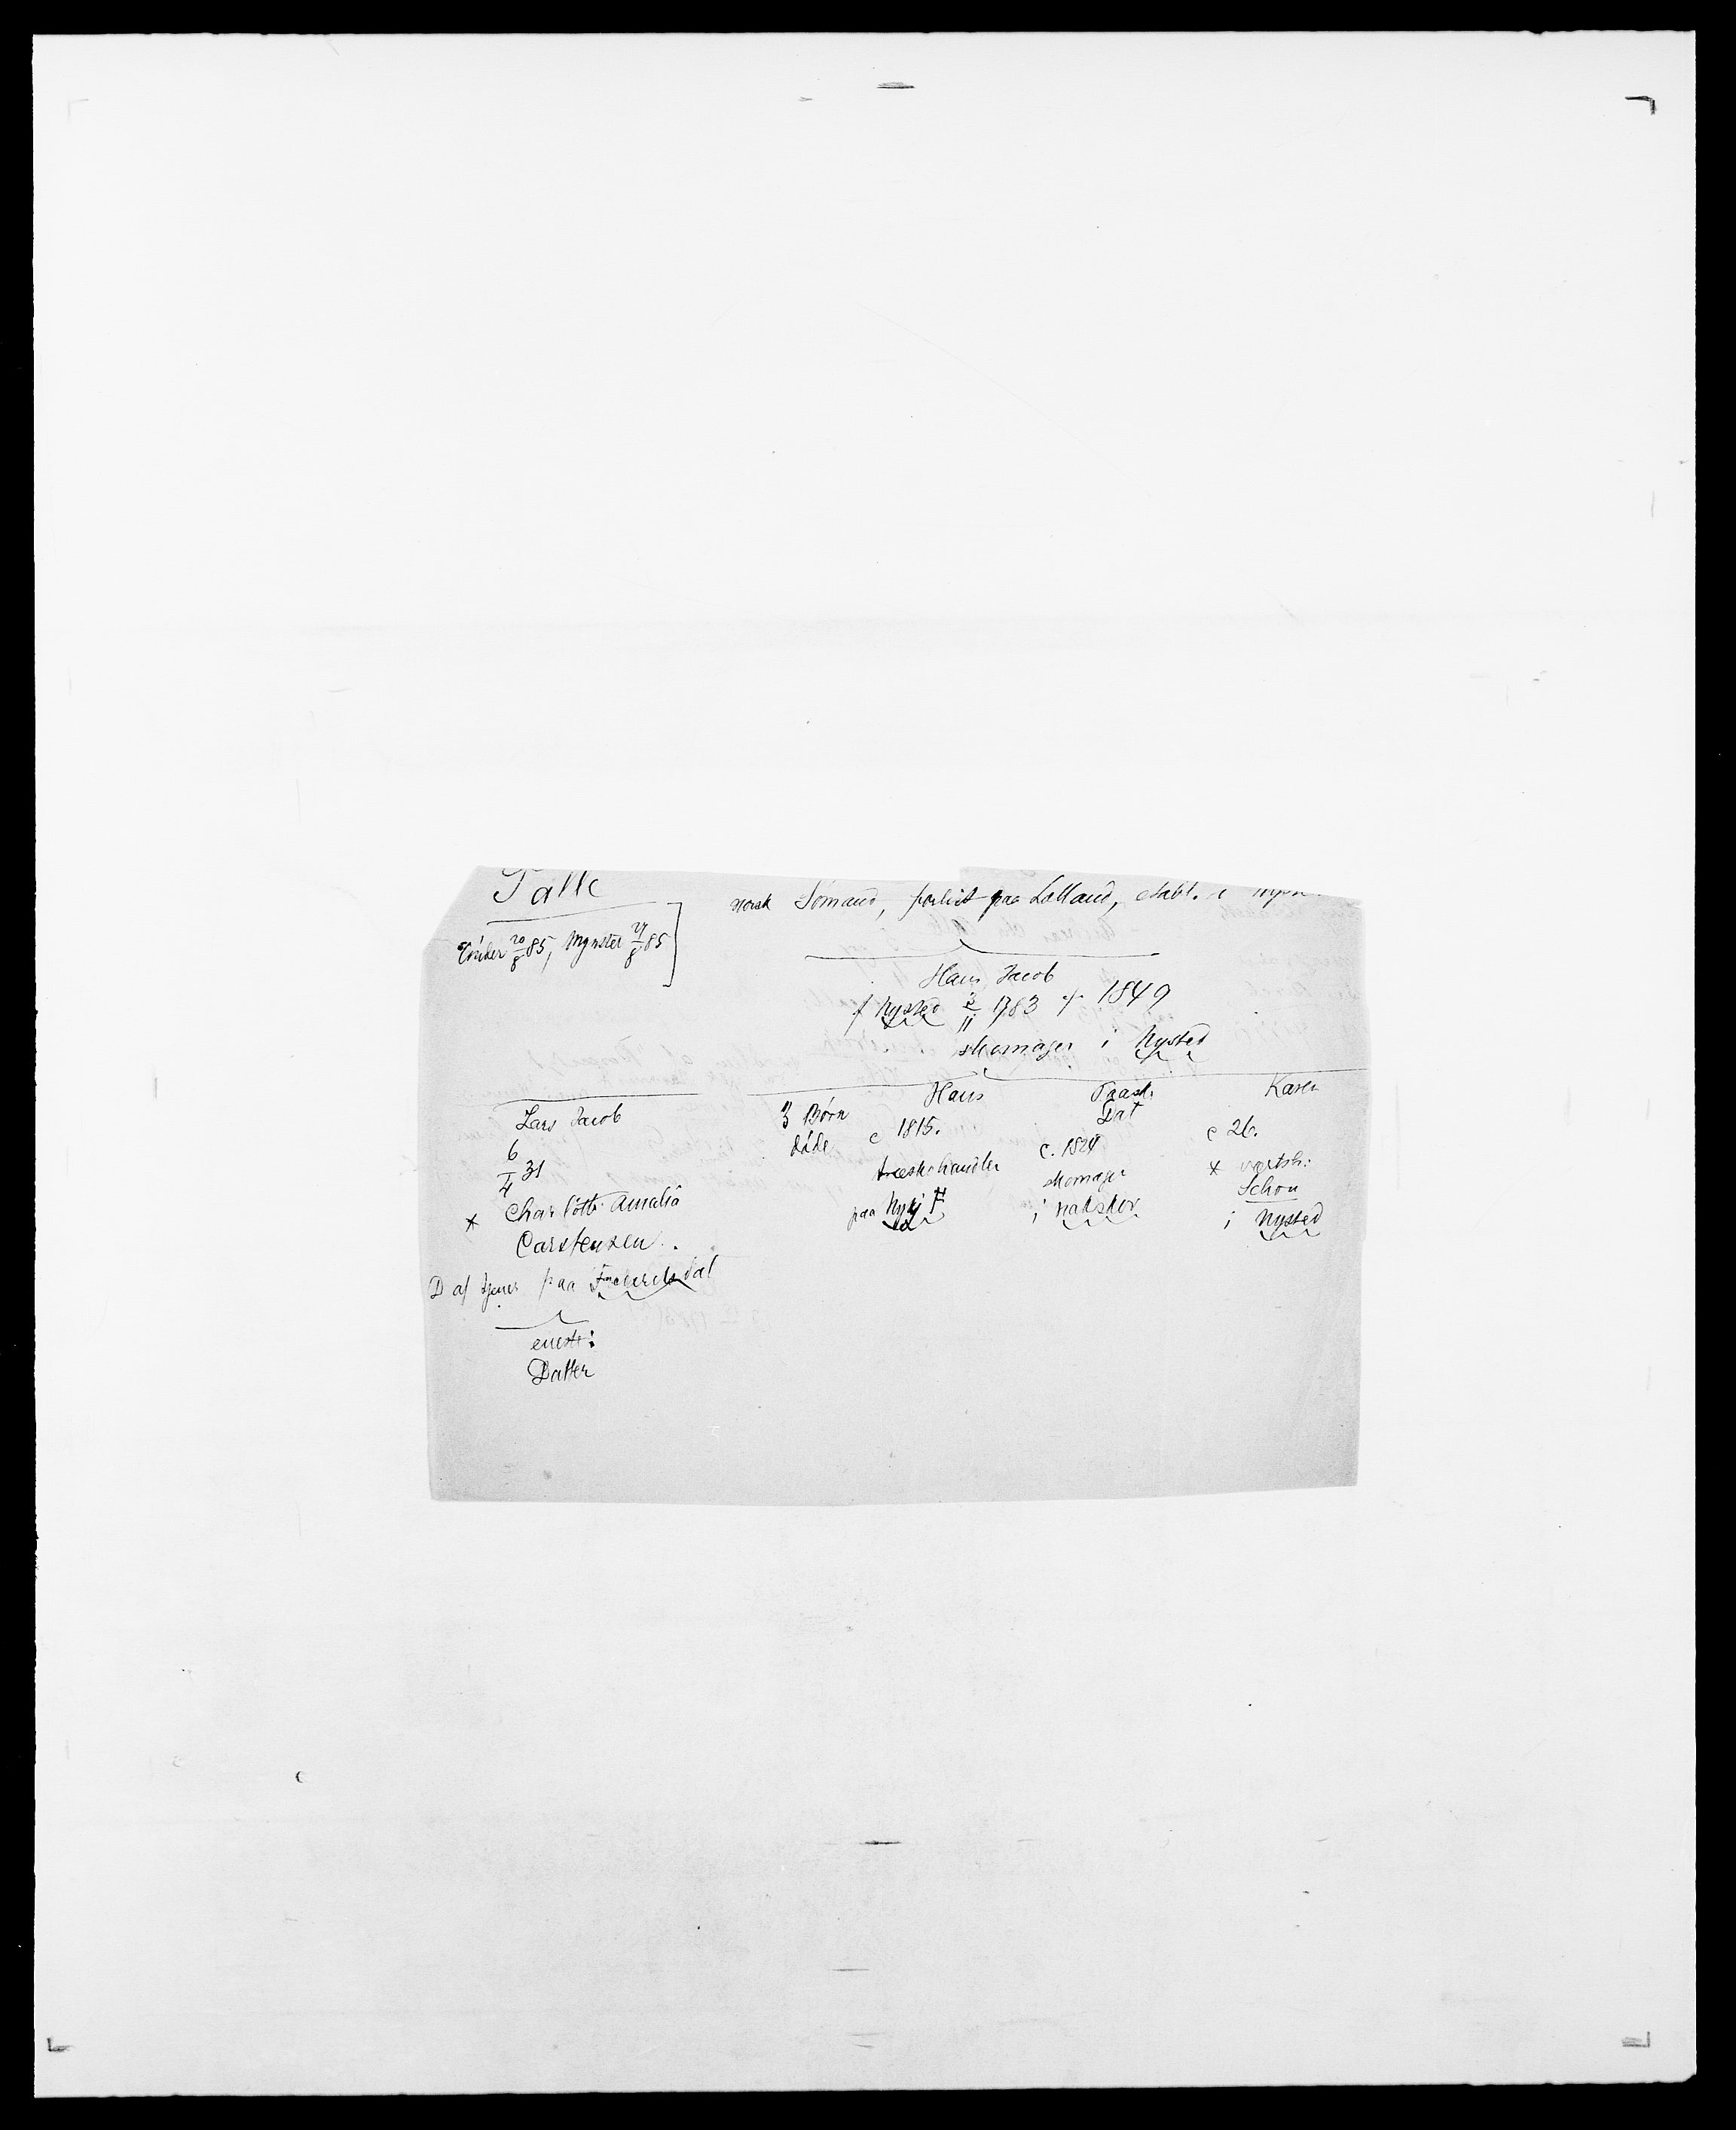 Palle
norsk Sömand, forlist paa Lolland, etabl. i
20/8 85, Mynster 21/8 85]
Hans Jacob
f Nysted 2/11 1783 † 1849
skomager i Nysted
Lars Jacob
6/4 31
* Charlotte Amalia
Carstensen.
D af tjener paa Frederiksdal
eneste:
Datter
3 Børn
døde
Hans
c 1815.
træskohandler
paa Nykj F
Dat
c. 1824
skomager
i Nakskov
Karen
c 26.
* værtsh:
Schou
i Nysted